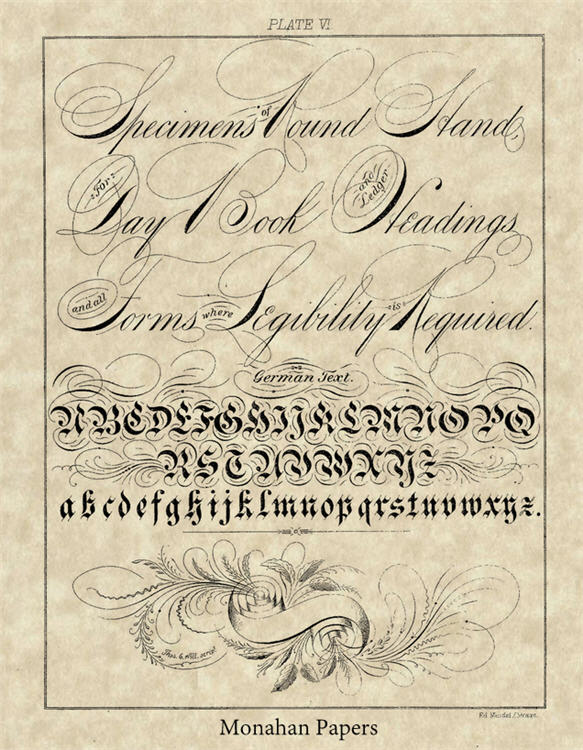 PLATE VI
Specimens of Round Hand,
For Day Book and Ledger Headings,
and all Forms where Legibility is Required.
German Text.
A B C D E F G H I J K L M N O P Q
R S T U V W X Y Z
a b c d e f g h i j k l m n o p q r s t u v w x y z.
Monahan Papers